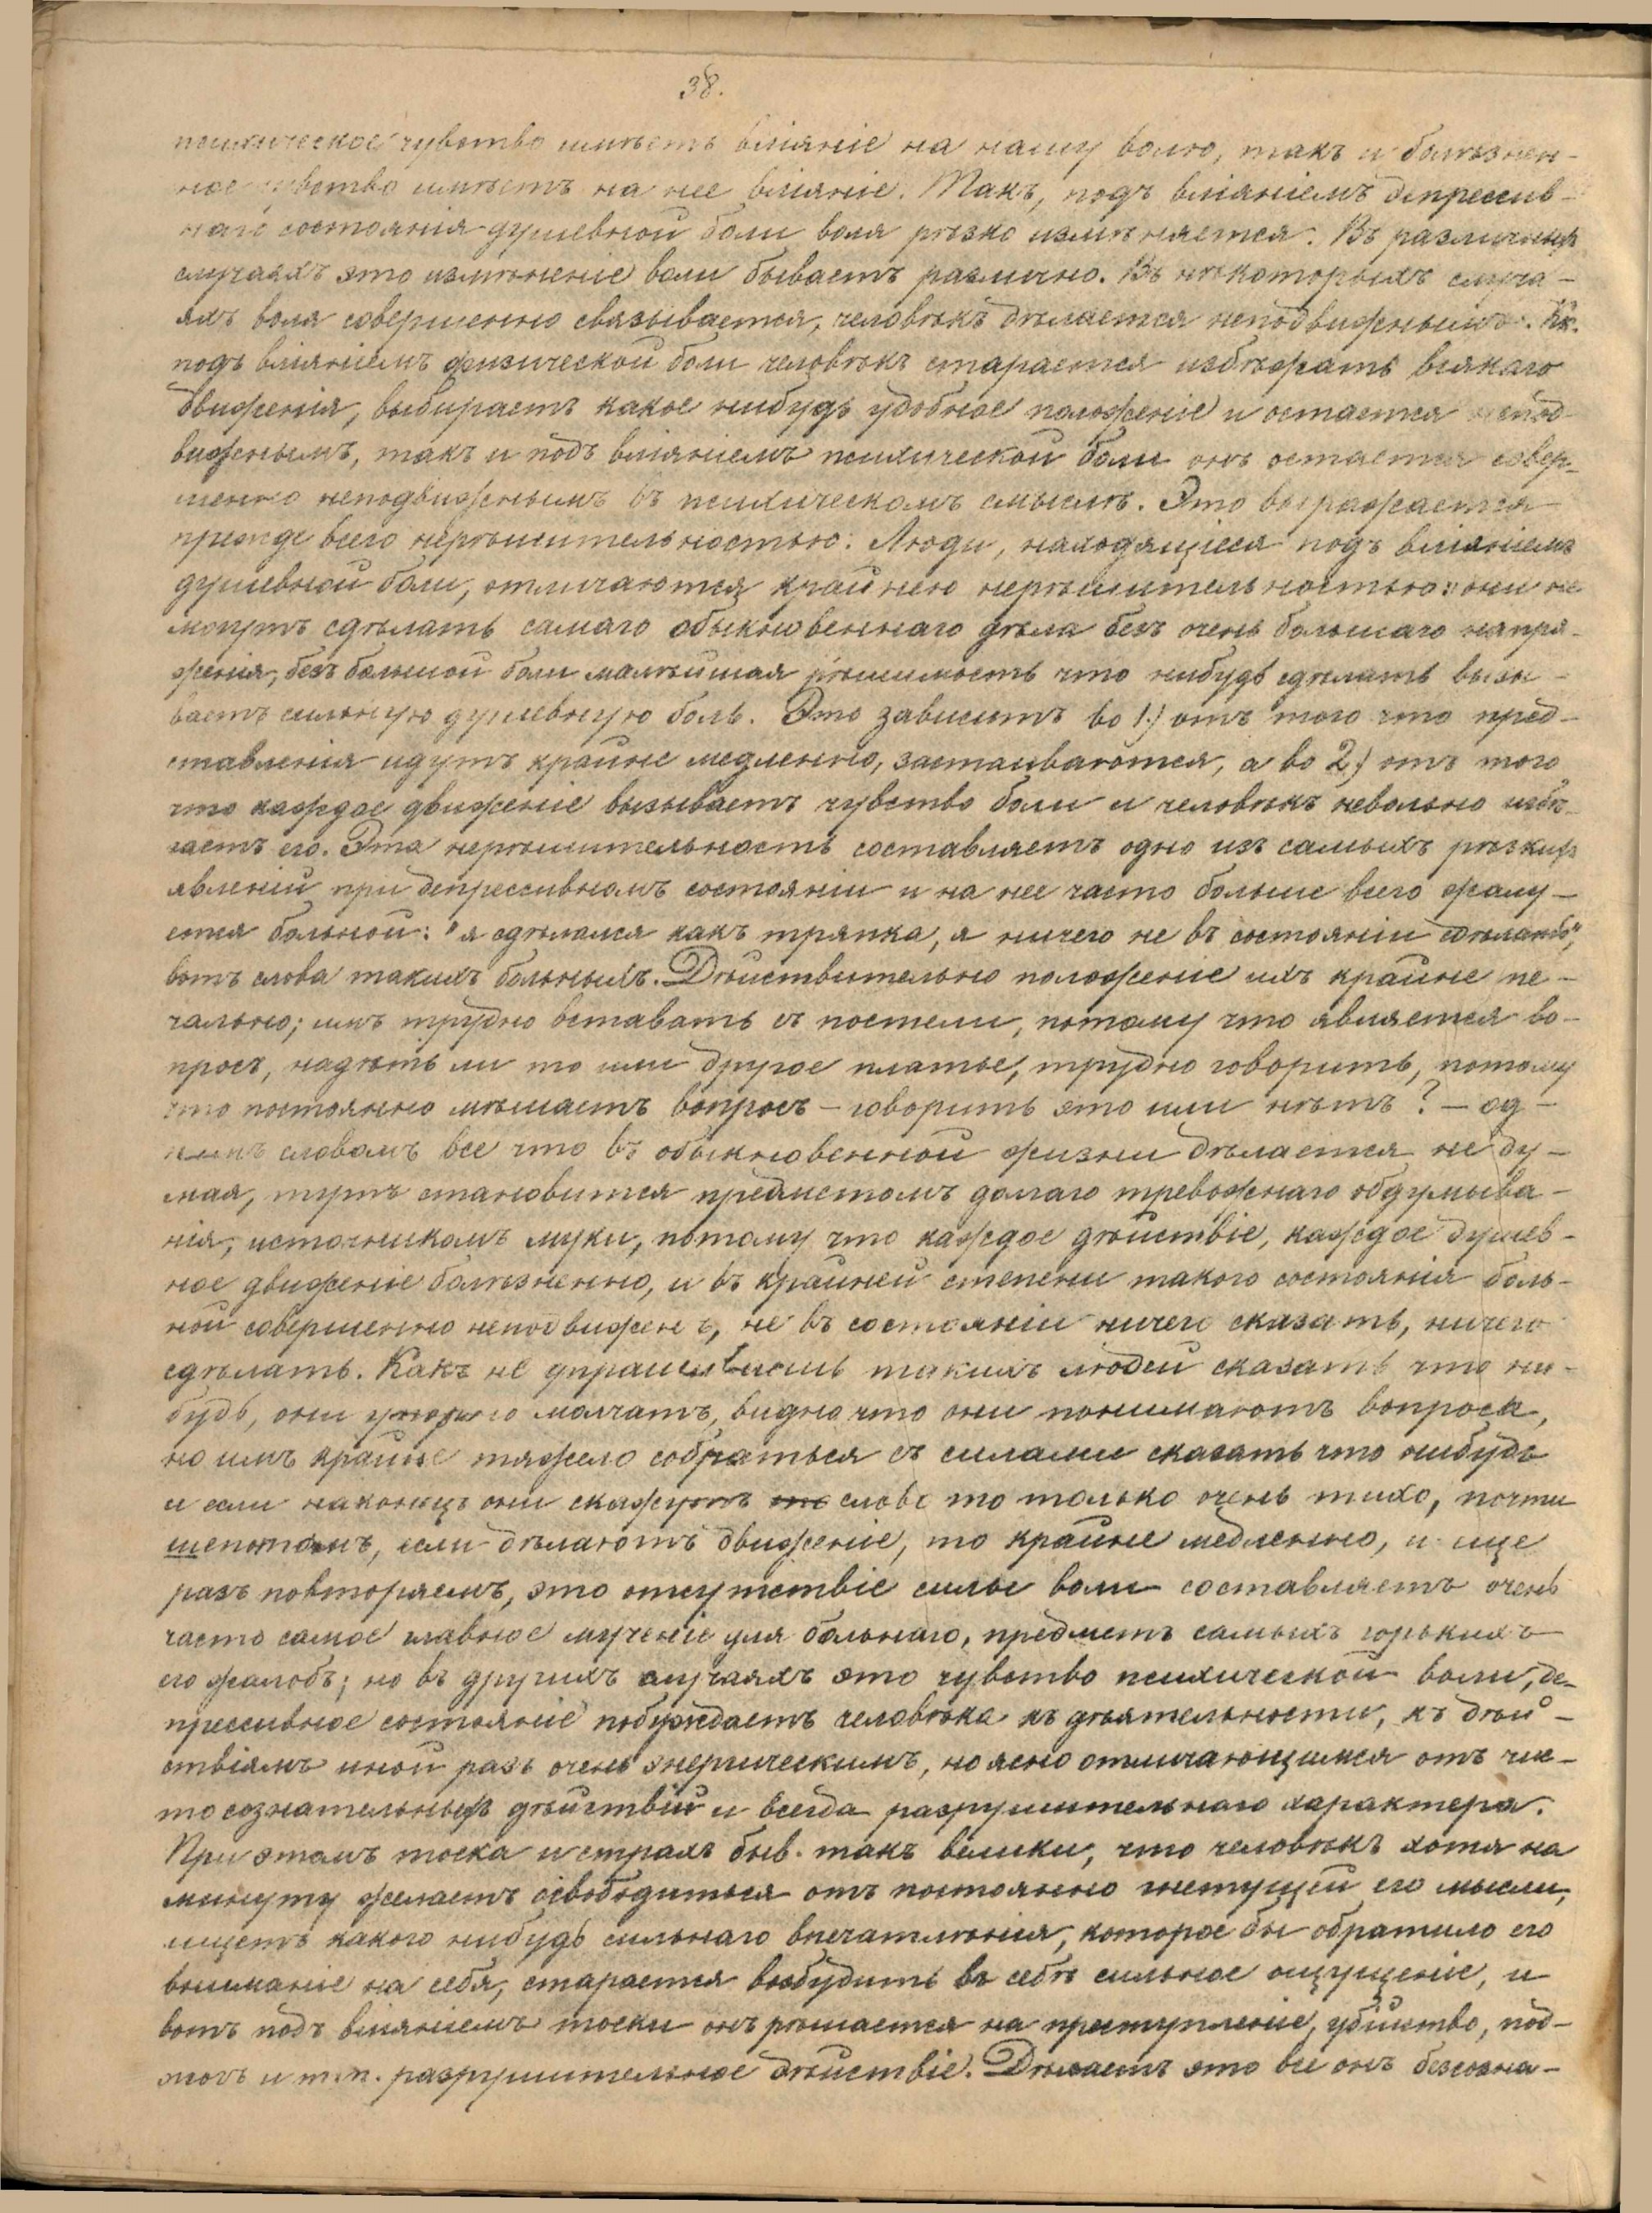 38.
психическое чувство имѣетъ вліяніе на нашу волю, такъ и болѣзнен-
ное чувство имѣетъ на нее вліяніе. Такъ, подъ вліяніемъ депрессив-
наго состоянія душевной боли воля рѣзко измѣняется. Въ различныхъ
случаяхъ это измѣненіе воли бываетъ различно. Въ нѣкоторыхъ случа-
яхъ воля совершенно связывается, человѣкъ дѣлается неподвижнымъ. Кк.
подъ вліяніемъ физической боли человѣкъ старается избѣжать всякаго
движенія, выбираетъ какое нибудь удобное положеніе и остается непод-
вижнымъ, такъ и подъ вліяніемъ психической боли онъ остается совер-
шенно неподвижнымъ въ психическомъ смыслѣ. Это выражается
прежде всего нерѣшительностью. Люди, находящіеся подъ вліяніемъ
душевной боли, отличаются крайнею нерѣшительностью: они не
могутъ сдѣлать самаго обыкновеннаго дѣла безъ очень большаго напря-
женія, безъ большой боли малѣйшая рѣшимость что нибудь сдѣлать вызы-
ваетъ сильную душевную боль. Это зависитъ во 1.) отъ того что пред-
ставленія идутъ крайне медленно, застаиваются, а во 2.) отъ того
что каждое движеніе вызываетъ чувство боли и человѣкъ невольно избѣ-
гаетъ его. Эта нерѣшительность составляетъ одно изъ самыхъ рѣзкихъ
явленій при депрессивномъ состояніи и на нее часто больше всего жалу-
ется больной: "я сдѣлался какъ тряпка, я ничего не въ состояніи сдѣлать",
вотъ слова такихъ больныхъ. Дѣйствительно положеніе ихъ крайне пе-
чально; имъ трудно вставать съ постели, потому что является во-
просъ, надѣть ли то или другое платье, трудно говорить, потому
что постоянно мѣшаетъ вопросъ – говорить это или нѣтъ? – од-
нимъ словомъ все что въ обыкновенной жизни дѣлается не ду-
мая, тутъ становится предметомъ долгаго тревожнаго обдумыва-
нія, источникомъ муки, потому что каждое дѣйствіе, каждое душев-
ное движеніе болѣзненно, и въ крайней степени такого состоянія боль-
ной совершенно неподвиженъ, не въ состояніи ничего сказать, ничего
сдѣлать. Какъ не упрашиваешь такихъ людей сказать что ни-
будь, они упорно молчатъ, видно что они понимаютъ вопросъ,
но имъ крайне тяжело собраться съ силами сказать что нибудь
и если наконецъ они скажутъ слово то только очень тихо, почти
шепотомъ, если дѣлаютъ движеніе, то крайне медленно, и еще
разъ повторяемъ, это отсутствіе силы воли составляетъ очень
часто самое главное мученіе для больнаго, предметъ самыхъ горькихъ
его жалобъ; но въ другихъ случаяхъ это чувство психической боли, де-
прессивное состояніе побуждаетъ человѣка къ дѣятельности, къ дѣй-
ствіямъ иной разъ очень энергическимъ, но ясно отличающимся отъ чис-
то сознательныхъ дѣйствій и всегда разрушительнаго характера.
При этомъ тоска и страхъ быв. такъ велики, что человѣкъ хотя на
минуту желаетъ освободиться отъ постоянно гнетущей его мысли,
ищетъ какого нибудь сильнаго впечатлѣнія, которое бы обратило его
вниманіе на себя, старается возбудить въ себѣ сильное ощущеніе, и
вотъ подъ вліяніемъ тоски онъ рѣшается на преступленіе, убійство, под-
жогъ и т.п. разрушительное дѣйствіе. Дѣлаетъ это все онъ безсозна-